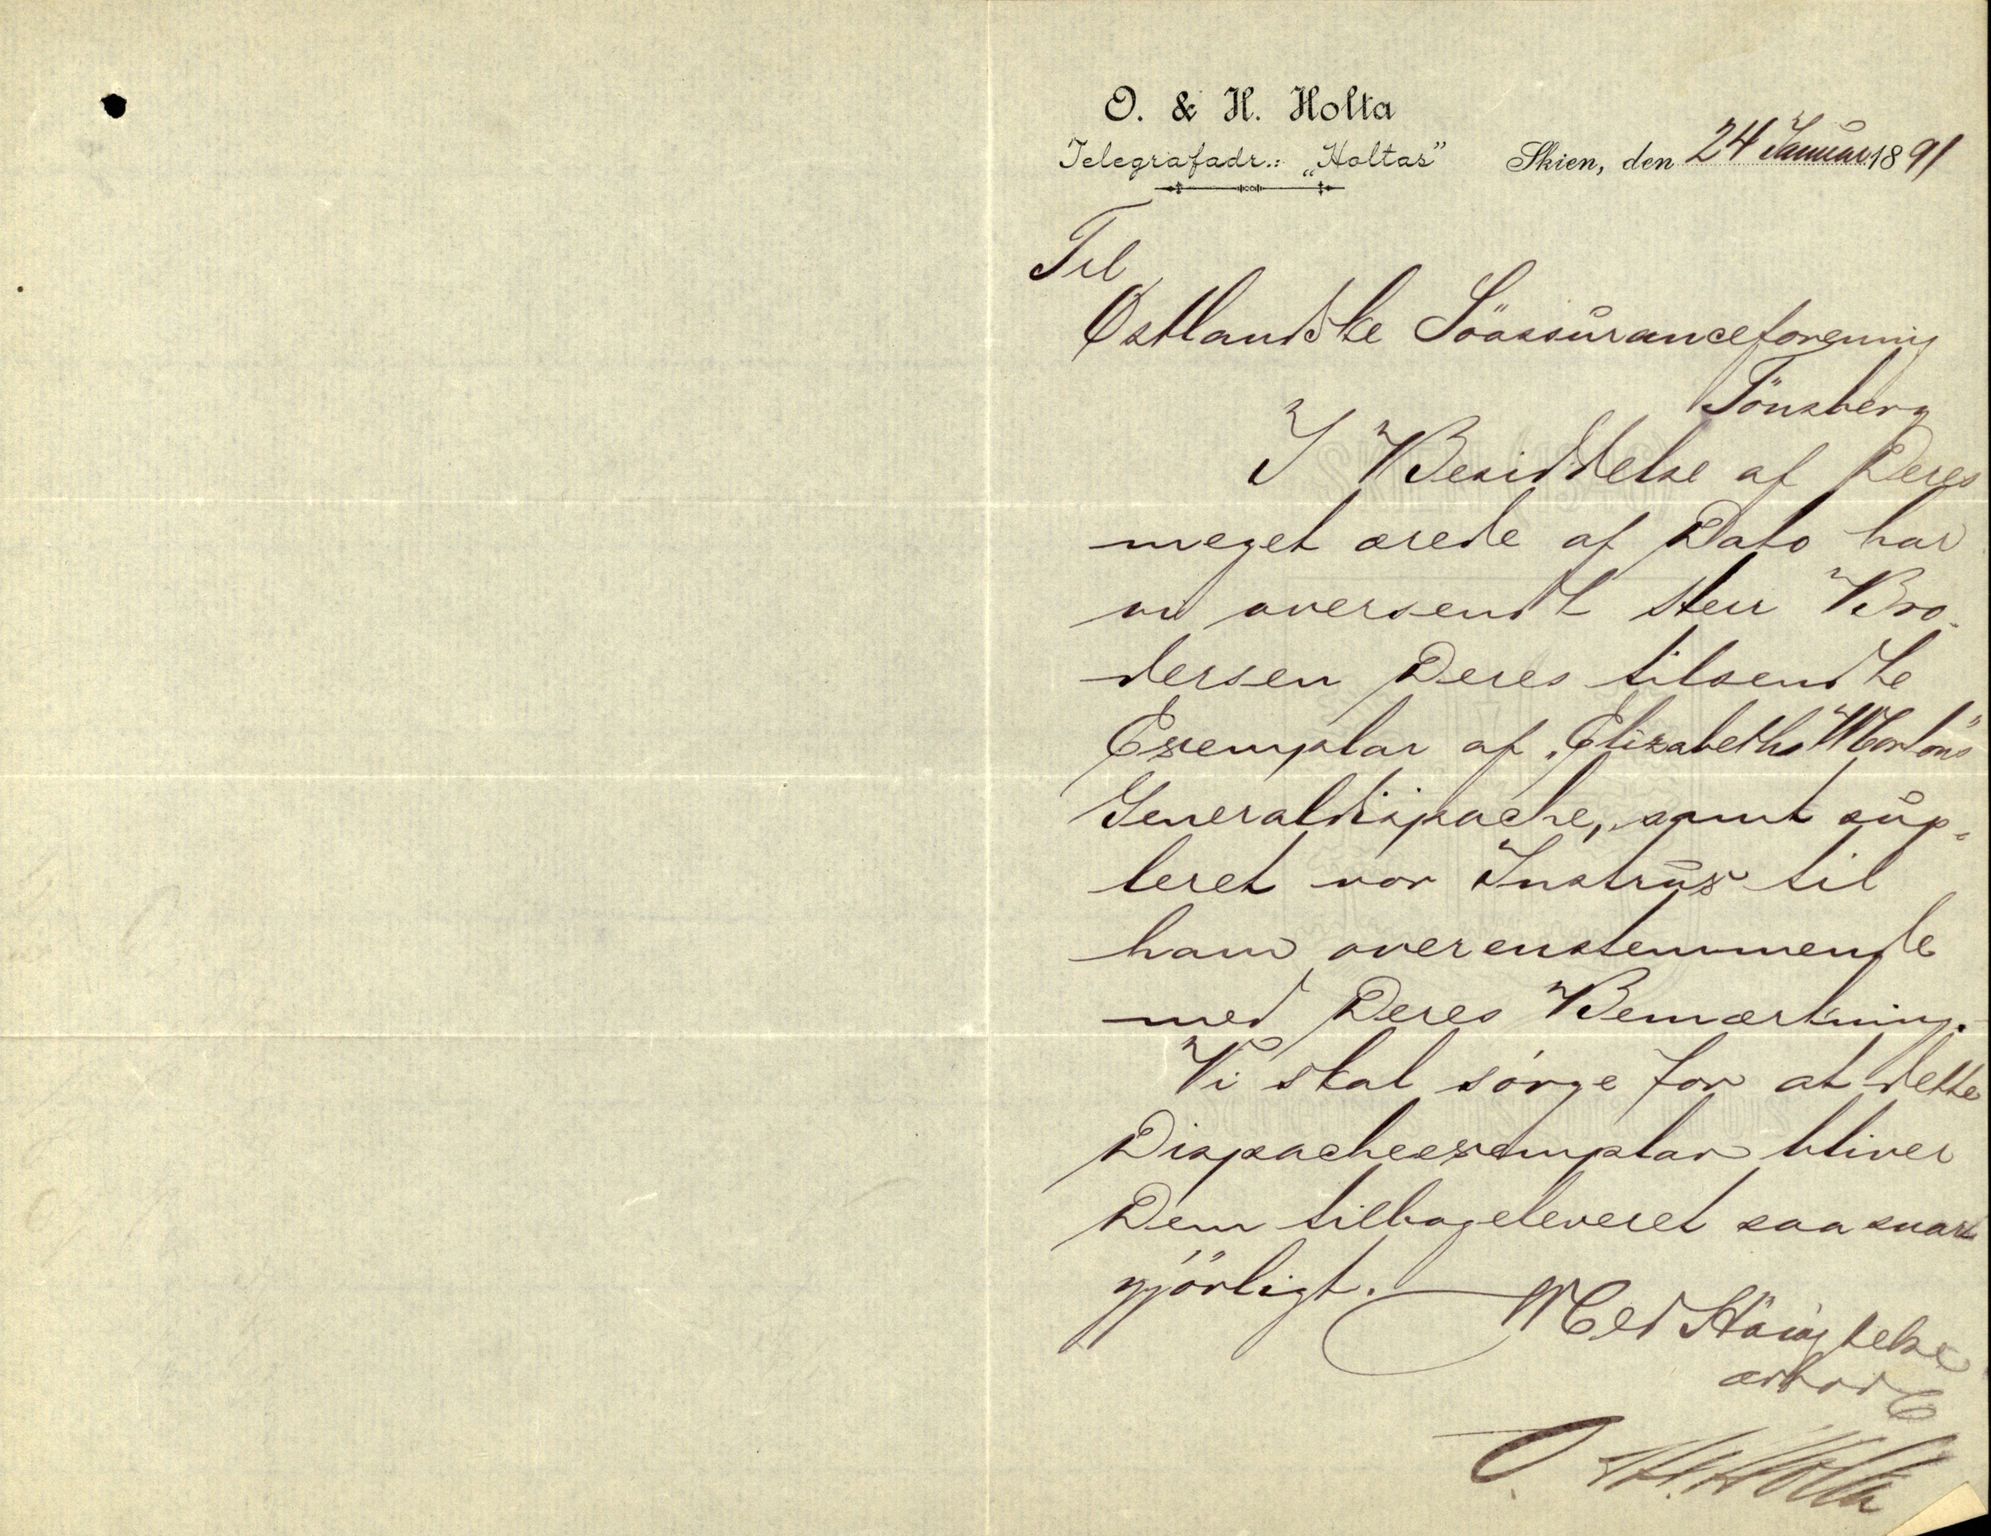 O. & H. Holta
Telegrafadr.: „Holtas”
Skien, den 24 Januar 1891
Til
Østlandske Söassuranceforening
Tönsberg
I Besiddelse af Deres
meget ærede af Dato har
vi oversendt Herr Bro-
dersen Deres tilsendte
Exemplar af „Elizabeths Mortons”
Generaldispache, samt sup-
leret vor Instrux til
ham overenstemmende
med Deres Bemærkning.
Vi skal sörge for at dette
Dispacheexemplar bliver
Dem tilbageleveret saa snart
gjörligt.
Med Höiagtelse
ærbød
O. & H. Holta